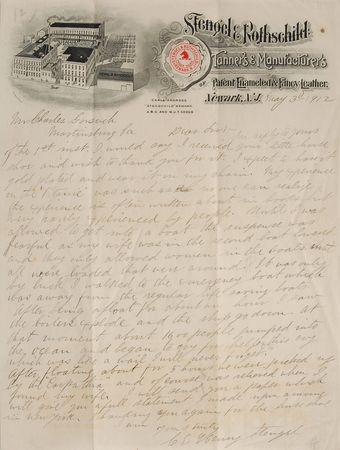 Stengel & Rothschild
Tanners & Manufacturers
of Patent Enameled & Fancy Leather.
CABLE ADDRESS
Newark, N.J. May 3rd 1912
Mr Charles
Martinsburg
Dear Sir: In reply to yours
of the 1st inst. I would say I received your little horse
shoe and wish to thank you for it. I expect to have it
gold plated and wear it on my chain. My experience
on the Titanic was such as no one can realize
the experience is often written about in books but
very rarely experienced by people. Until I was
allowed to get into a boat the suspense was
fearful as my wife was in the second boat lowered
and they only allowed women in the boats until
all were loaded that were around. It was only
by luck I walked to the emergency boat which
was away from the regular life saving boats.
After being afloat for about an hour I saw
the boilers explode and the ship go down. At
that moment about 1600 people jumped into
the ocean and began to cry for help
which was a wail I will never forget.
After floating about for 5 hours we were picked up
by the Carpathia and of course was relieved when I
found my wife. I will send you a paper which
will give you a full statement I made upon arriving
in New York. Thanking you again for the
I am yours truly
C. E. Henry Stengel